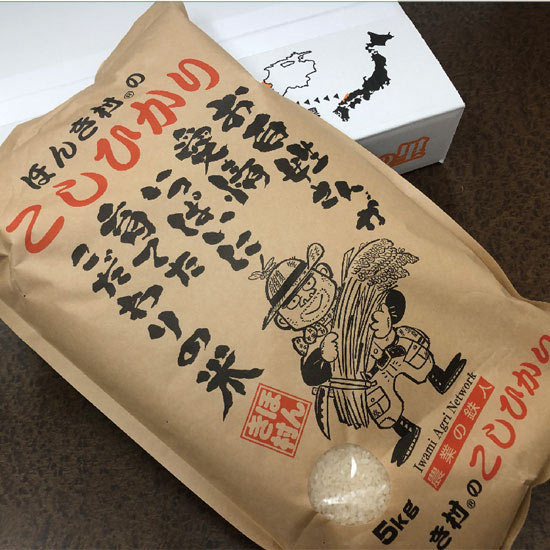 ほんき村®の
こしひかり
お百姓さんが
愛情
いっぱいに
育てた
こだわりの米
ほんき村
Iwami Agri Network
農業の鉄人
き村®の
こしひかり
5kg